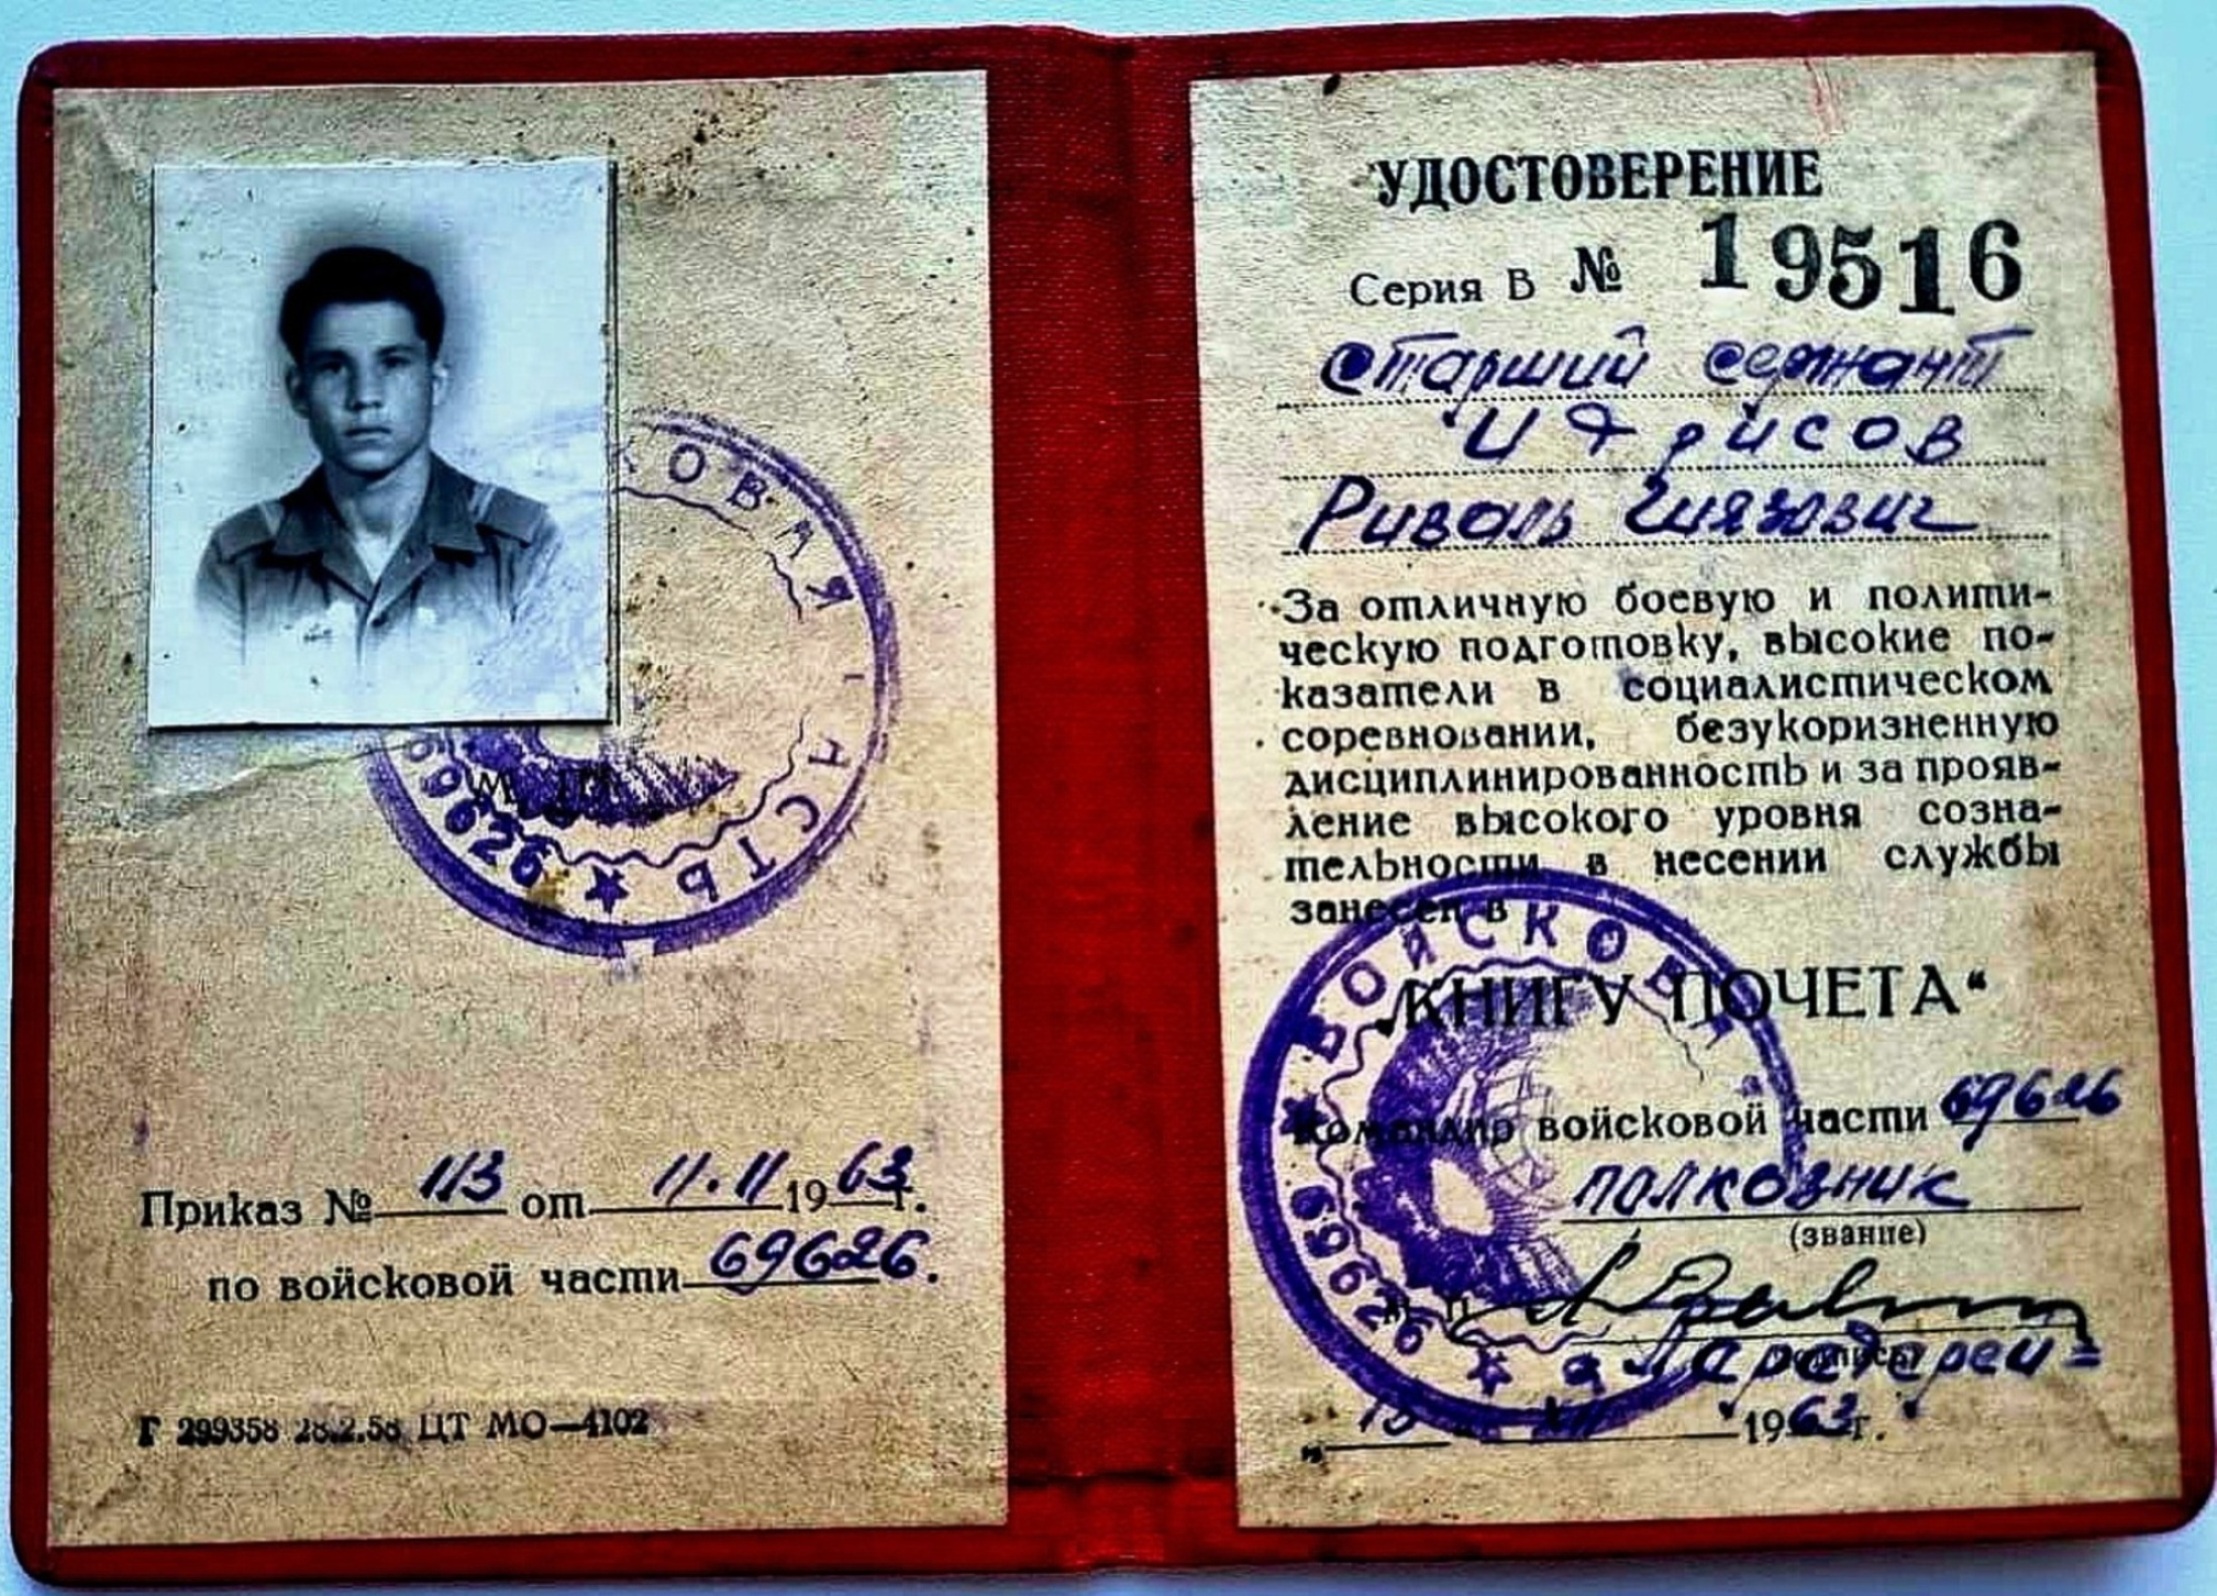 ВОЙСКОВАЯ ЧАСТЬ
69626
М. П.
Приказ № 113 от 11.11 1963 г.
по войсковой части 69626.
Г 299358 28.2.58 ЦТ МО—4102
УДОСТОВЕРЕНИЕ
Серия В № 19516
старший сержант
Идрисов
Риваль Гиязович
За отличную боевую и полити-
ческую подготовку, высокие по-
казатели в социалистическом
соревновании, безукоризненную
дисциплинированность и за прояв-
ление высокого уровня созна-
тельности в несении службы
занесен в
„КНИГУ ПОЧЕТА“
ВОЙСКОВАЯ
69626
Командир войсковой части 69626
полковник
(звание)
М. П.
(подпись)
1963 г.